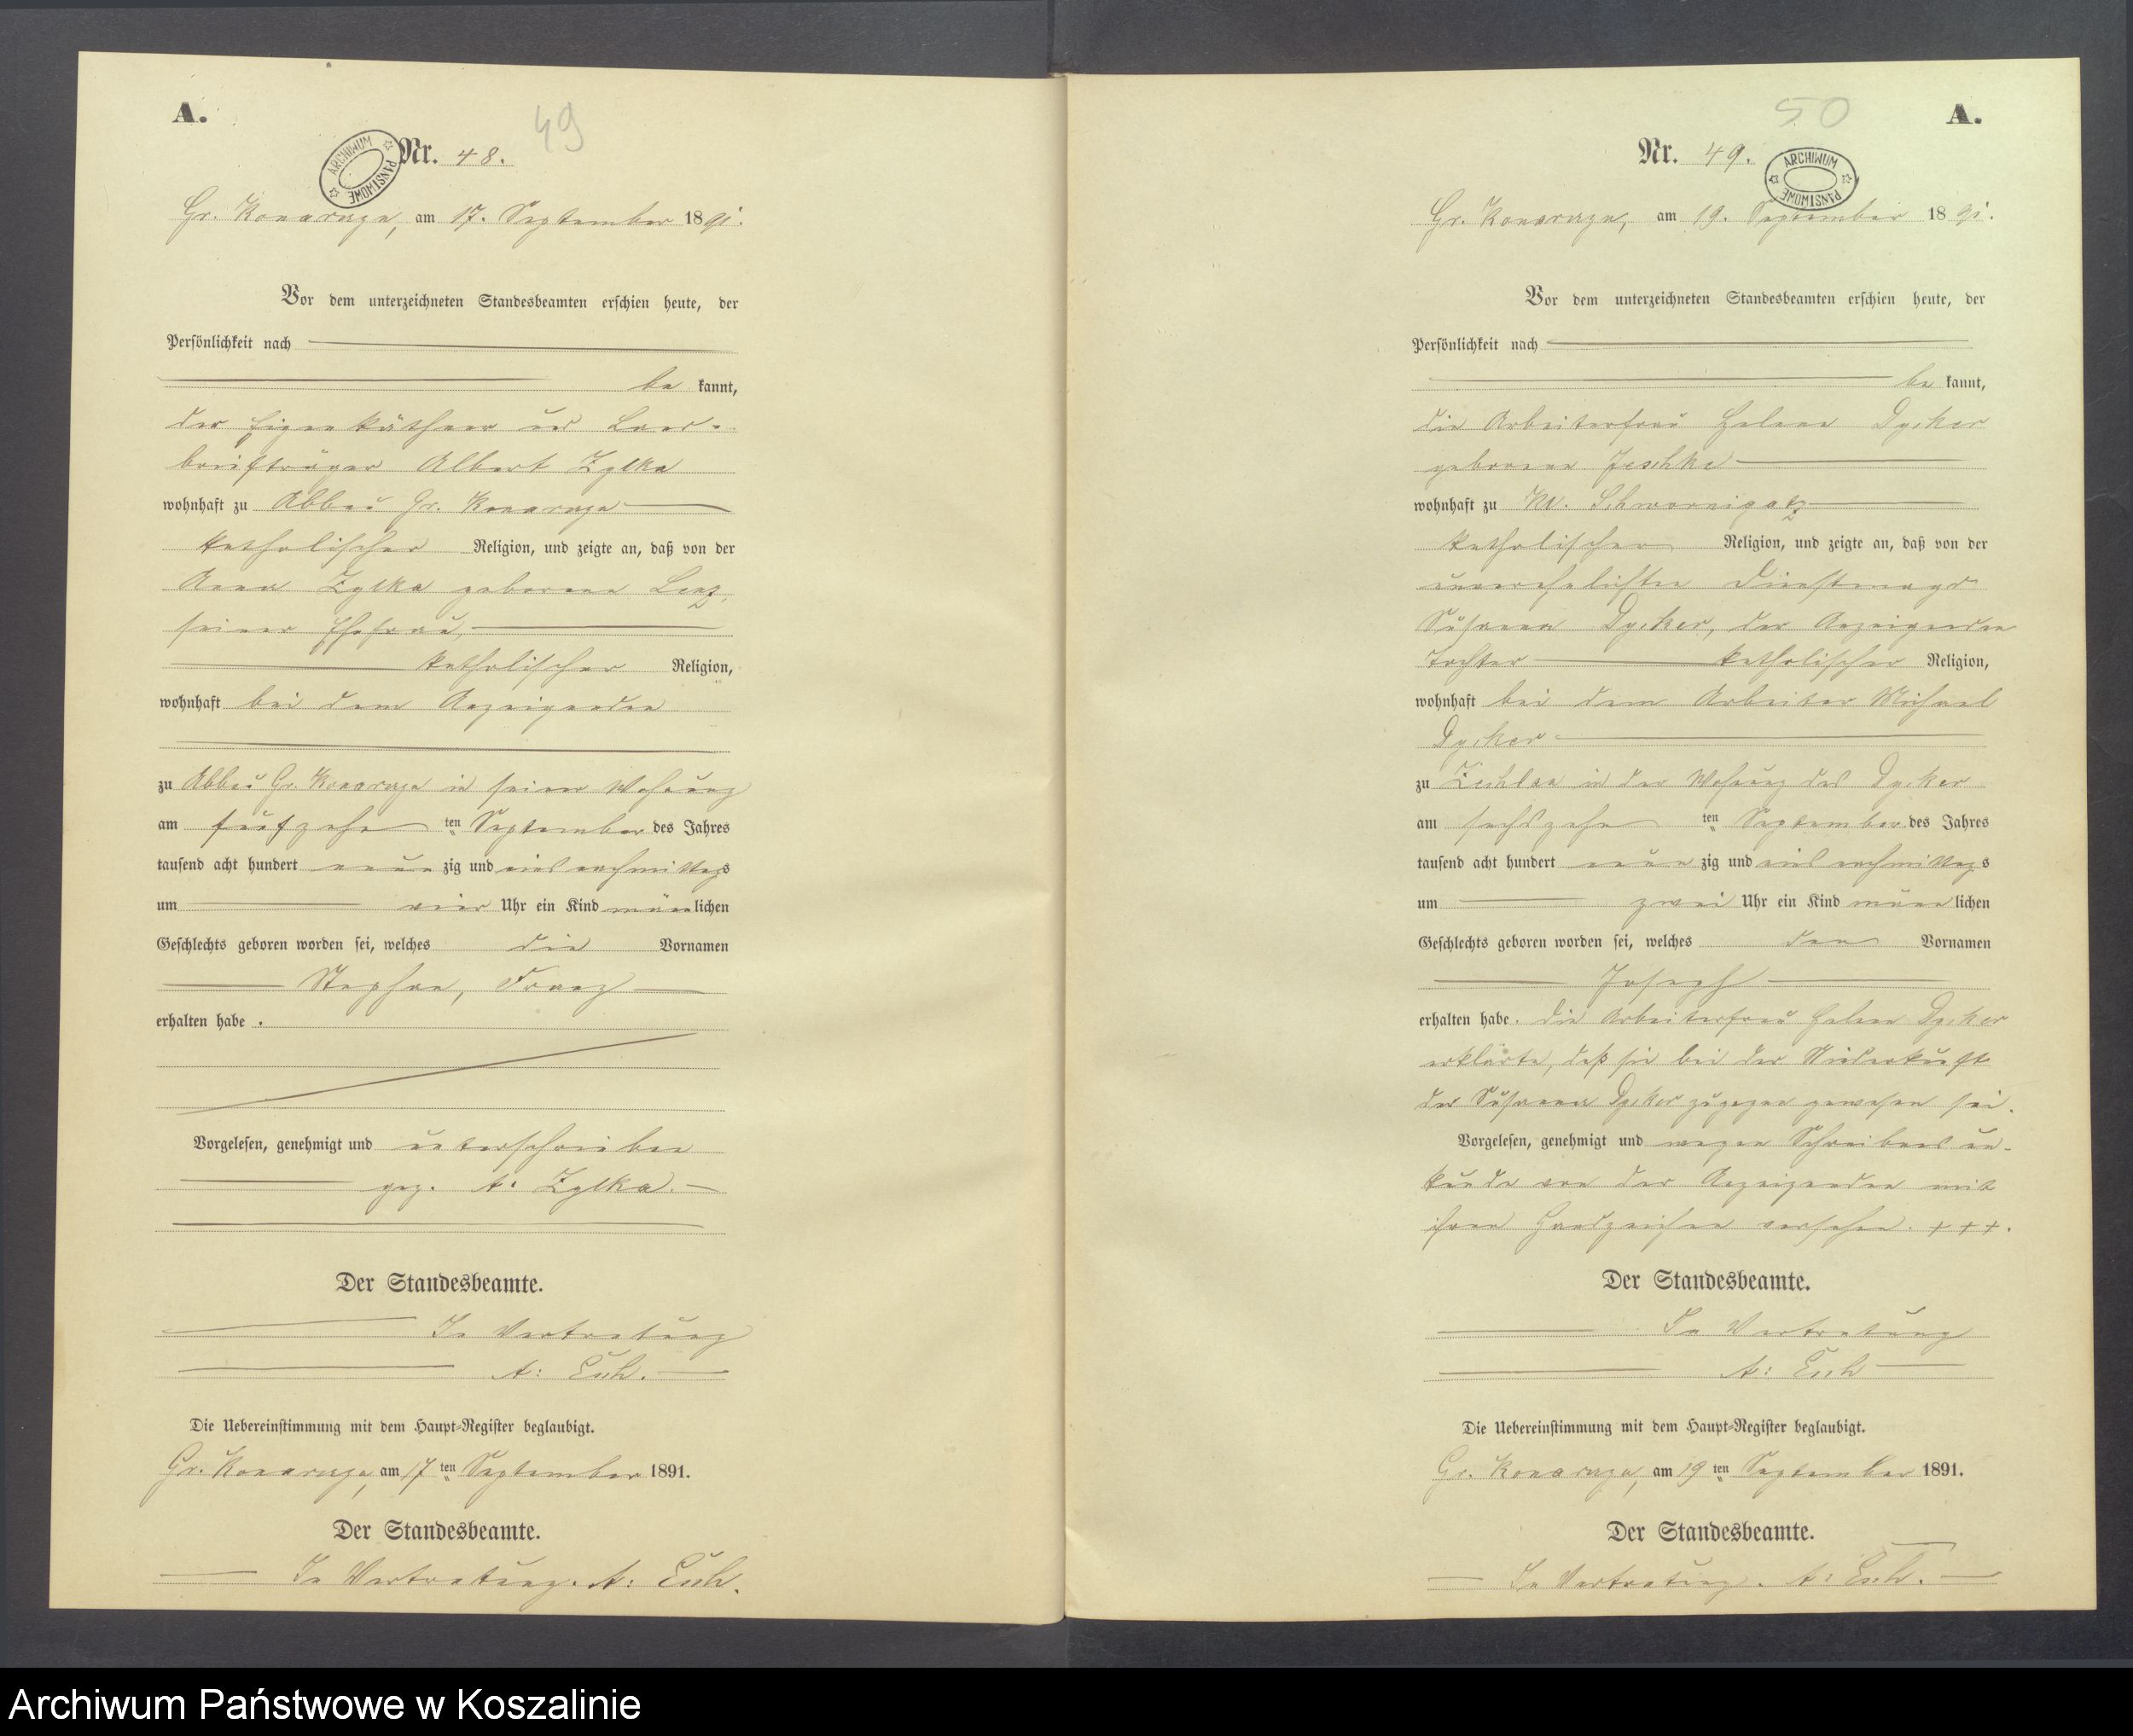 A.
49
Nr. 48.
ARCHIWUM PAŃSTWOWE
Gr. Konarczyn, am 17. September 1891.
Vor dem unterzeichneten Standesbeamten erschien heute, der
Persönlichkeit nach
be kannt,
der Eigenkäthner und Land-
briefträger Albert Zylka
wohnhaft zu Abbau Gr. Konarczyn
katholischer Religion, und zeigte an, daß von der
Anna Zylka geborene
seiner Ehefrau,
katholischer Religion,
wohnhaft bei dem Anzeigenden
zu Abbau Gr. Konarczyn in seiner Wohnung
am fünfzehn ten September des Jahres
tausend acht hundert neun zig und eins nachmittags
um vier Uhr ein Kind männlichen
Geschlechts geboren worden sei, welches die Vornamen
Stephan, Franz
erhalten habe.
Vorgelesen, genehmigt und unterschrieben
gez. A. Zylka.
Der Standesbeamte.
In Vertretung
A:
Die Uebereinstimmung mit dem Haupt-Register beglaubigt.
Gr. Konarczyn, am 17 ten September 1891.
Der Standesbeamte.
In Vertretung. A:
50
A.
Nr. 49.
ARCHIWUM PAŃSTWOWE
Gr. Konarczyn, am 19. September 1891.
Vor dem unterzeichneten Standesbeamten erschien heute, der
Persönlichkeit nach
be kannt,
die Arbeiterfrau Helene
geborene Jeschke
wohnhaft zu Kl. Schwornigatz
katholischer Religion, und zeigte an, daß von der
unverehelichten Dienstmagd
Susanna der Anzeigenden
Tochter katholischer Religion,
wohnhaft bei dem Arbeiter Michael
zu Zechlau in der Wohnung des
am sechszehn ten September des Jahres
tausend acht hundert neun zig und eins nachmittags
um zwei Uhr ein Kind männlichen
Geschlechts geboren worden sei, welches den Vornamen
Joseph
erhalten habe. Die Arbeiterfrau Helene
erklärte, daß sie bei der Niederkunft
der Susanna zugegen gewesen sei.
Vorgelesen, genehmigt und wegen Schreibensun-
kunde von der Anzeigenden mit
ihren Handzeichen versehen. + + +.
Der Standesbeamte.
In Vertretung
A:
Die Uebereinstimmung mit dem Haupt-Register beglaubigt.
Gr. Konarczyn, am 19 ten September 1891.
Der Standesbeamte.
In Vertretung. A:
Archiwum Państwowe w Koszalinie